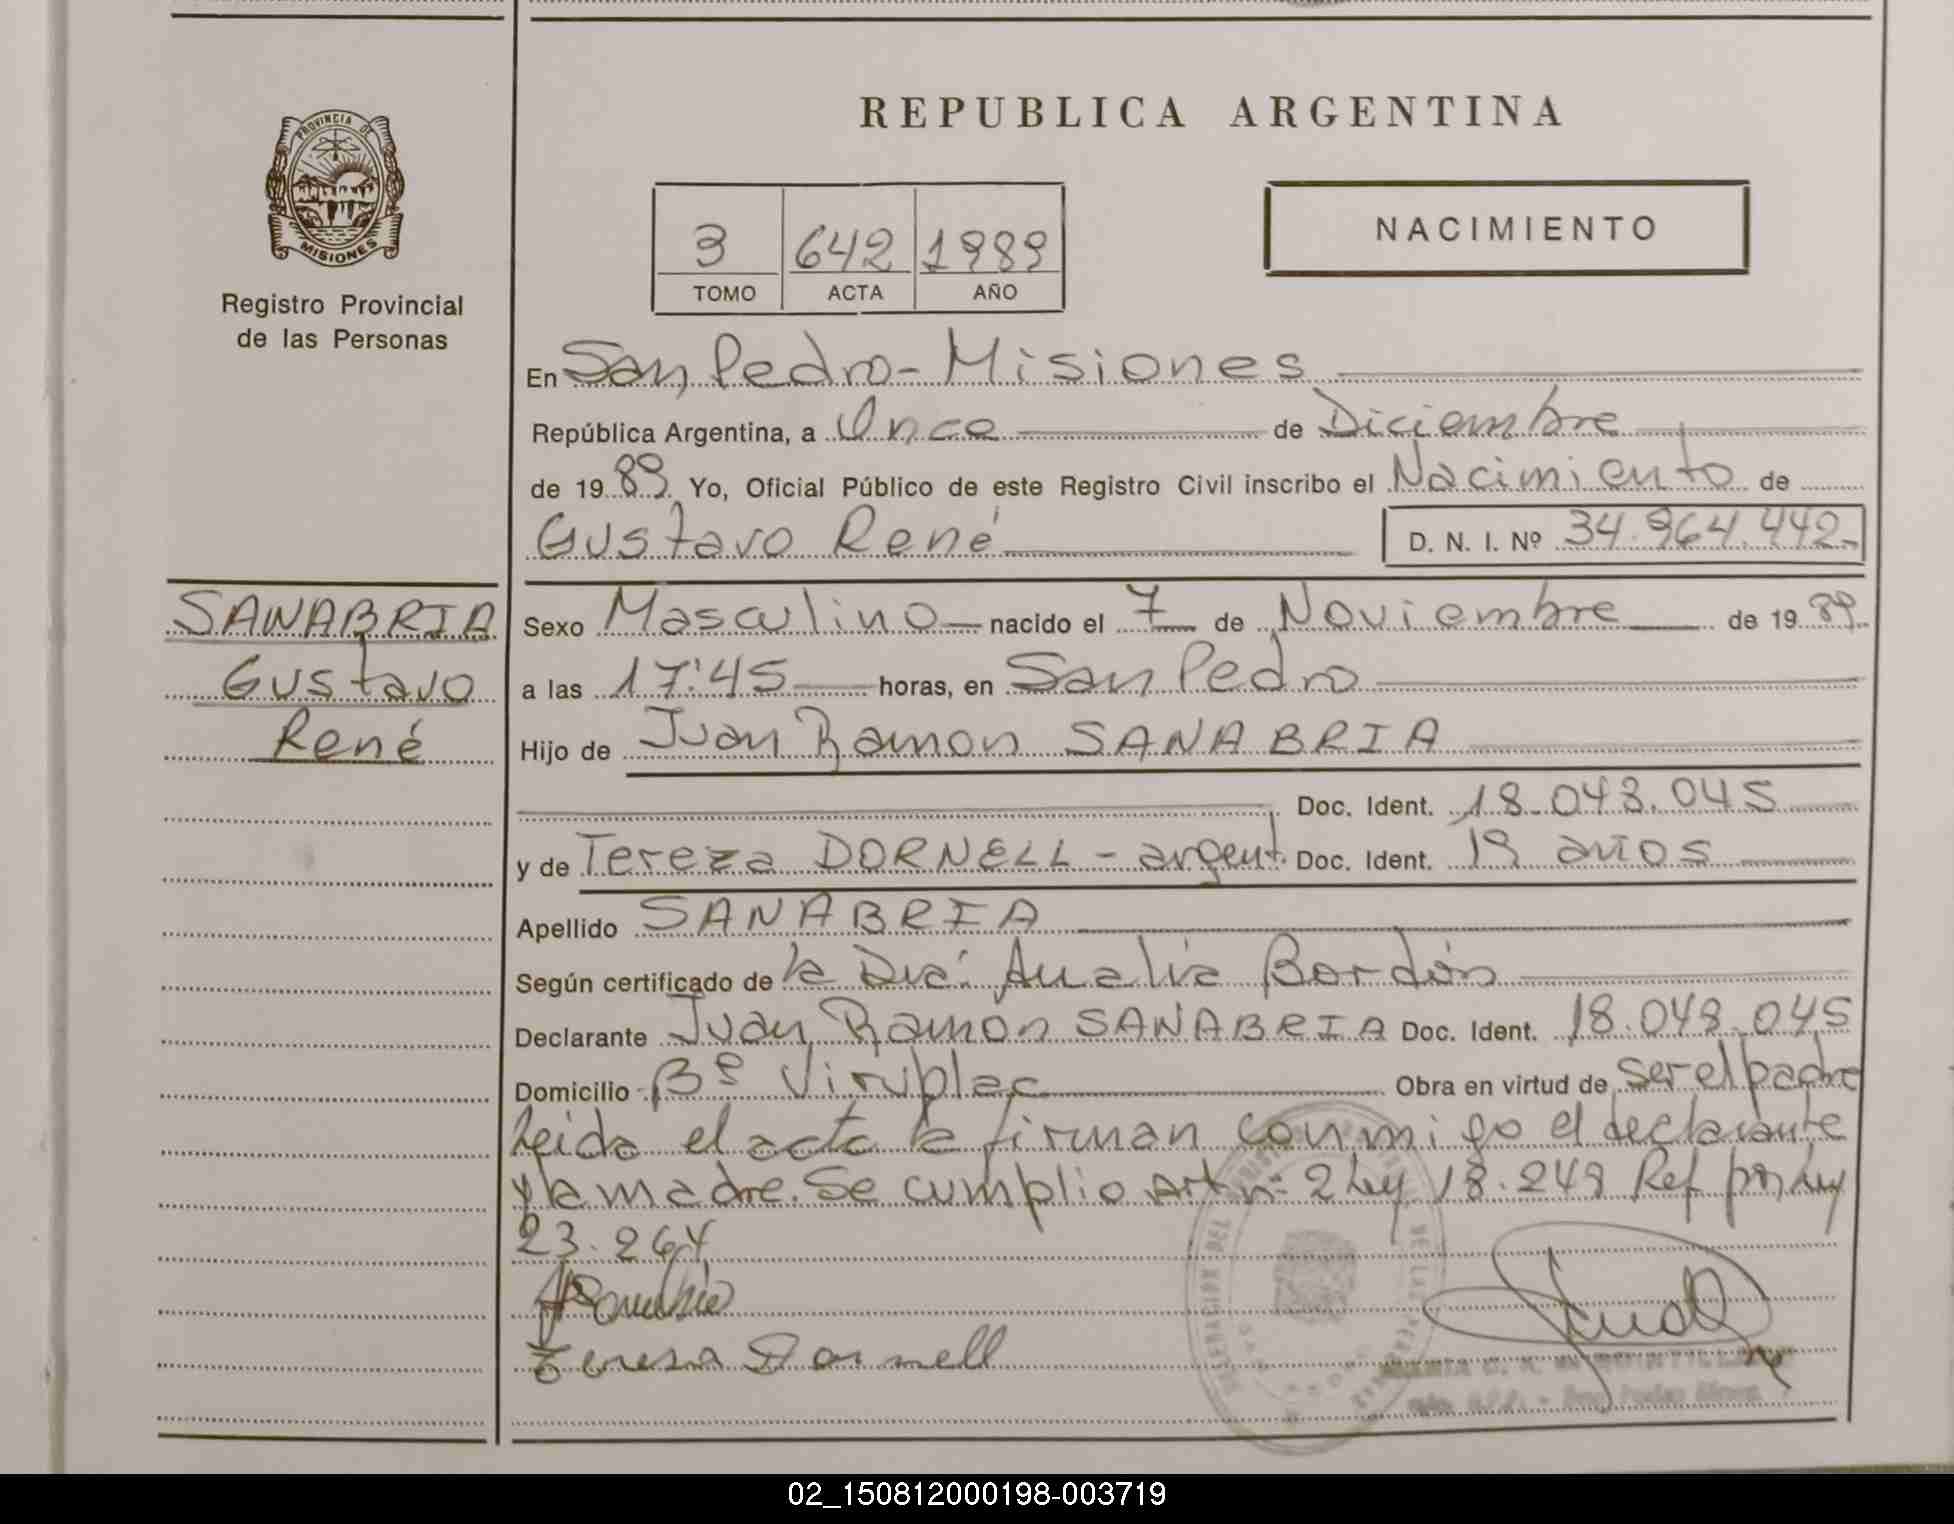 PROVINCIA DE
MISIONES
Registro Provincial
de las Personas
REPUBLICA ARGENTINA
3 642 1989
TOMO ACTA AÑO
NACIMIENTO
En San Pedro - Misiones
República Argentina, a Once de Diciembre
de 1989. Yo, Oficial Público de este Registro Civil inscribo el Nacimiento de
Gustavo René D. N. I. Nº 34.964.442-
SANABRIA
Gustavo
René
Sexo Masculino nacido el 7 de Noviembre de 1989.
a las 17:45 horas, en San Pedro
Hijo de Juan Ramon SANABRIA
Doc. Ident. 18.048.045
y de Tereza DORNELL - argent. Doc. Ident. 19 años
Apellido SANABRIA
Según certificado de la Dra. Analia Bordón
Declarante Juan Ramon SANABRIA Doc. Ident. 18.048.045
Domicilio Bº Obra en virtud de ser el padre
Leida el acta la firman conmigo el declarante
y la madre. Se cumplio Art nº 2 Ley 18.248 Ref por Ley
23.264
Teresa Dornell
02_150812000198-003719